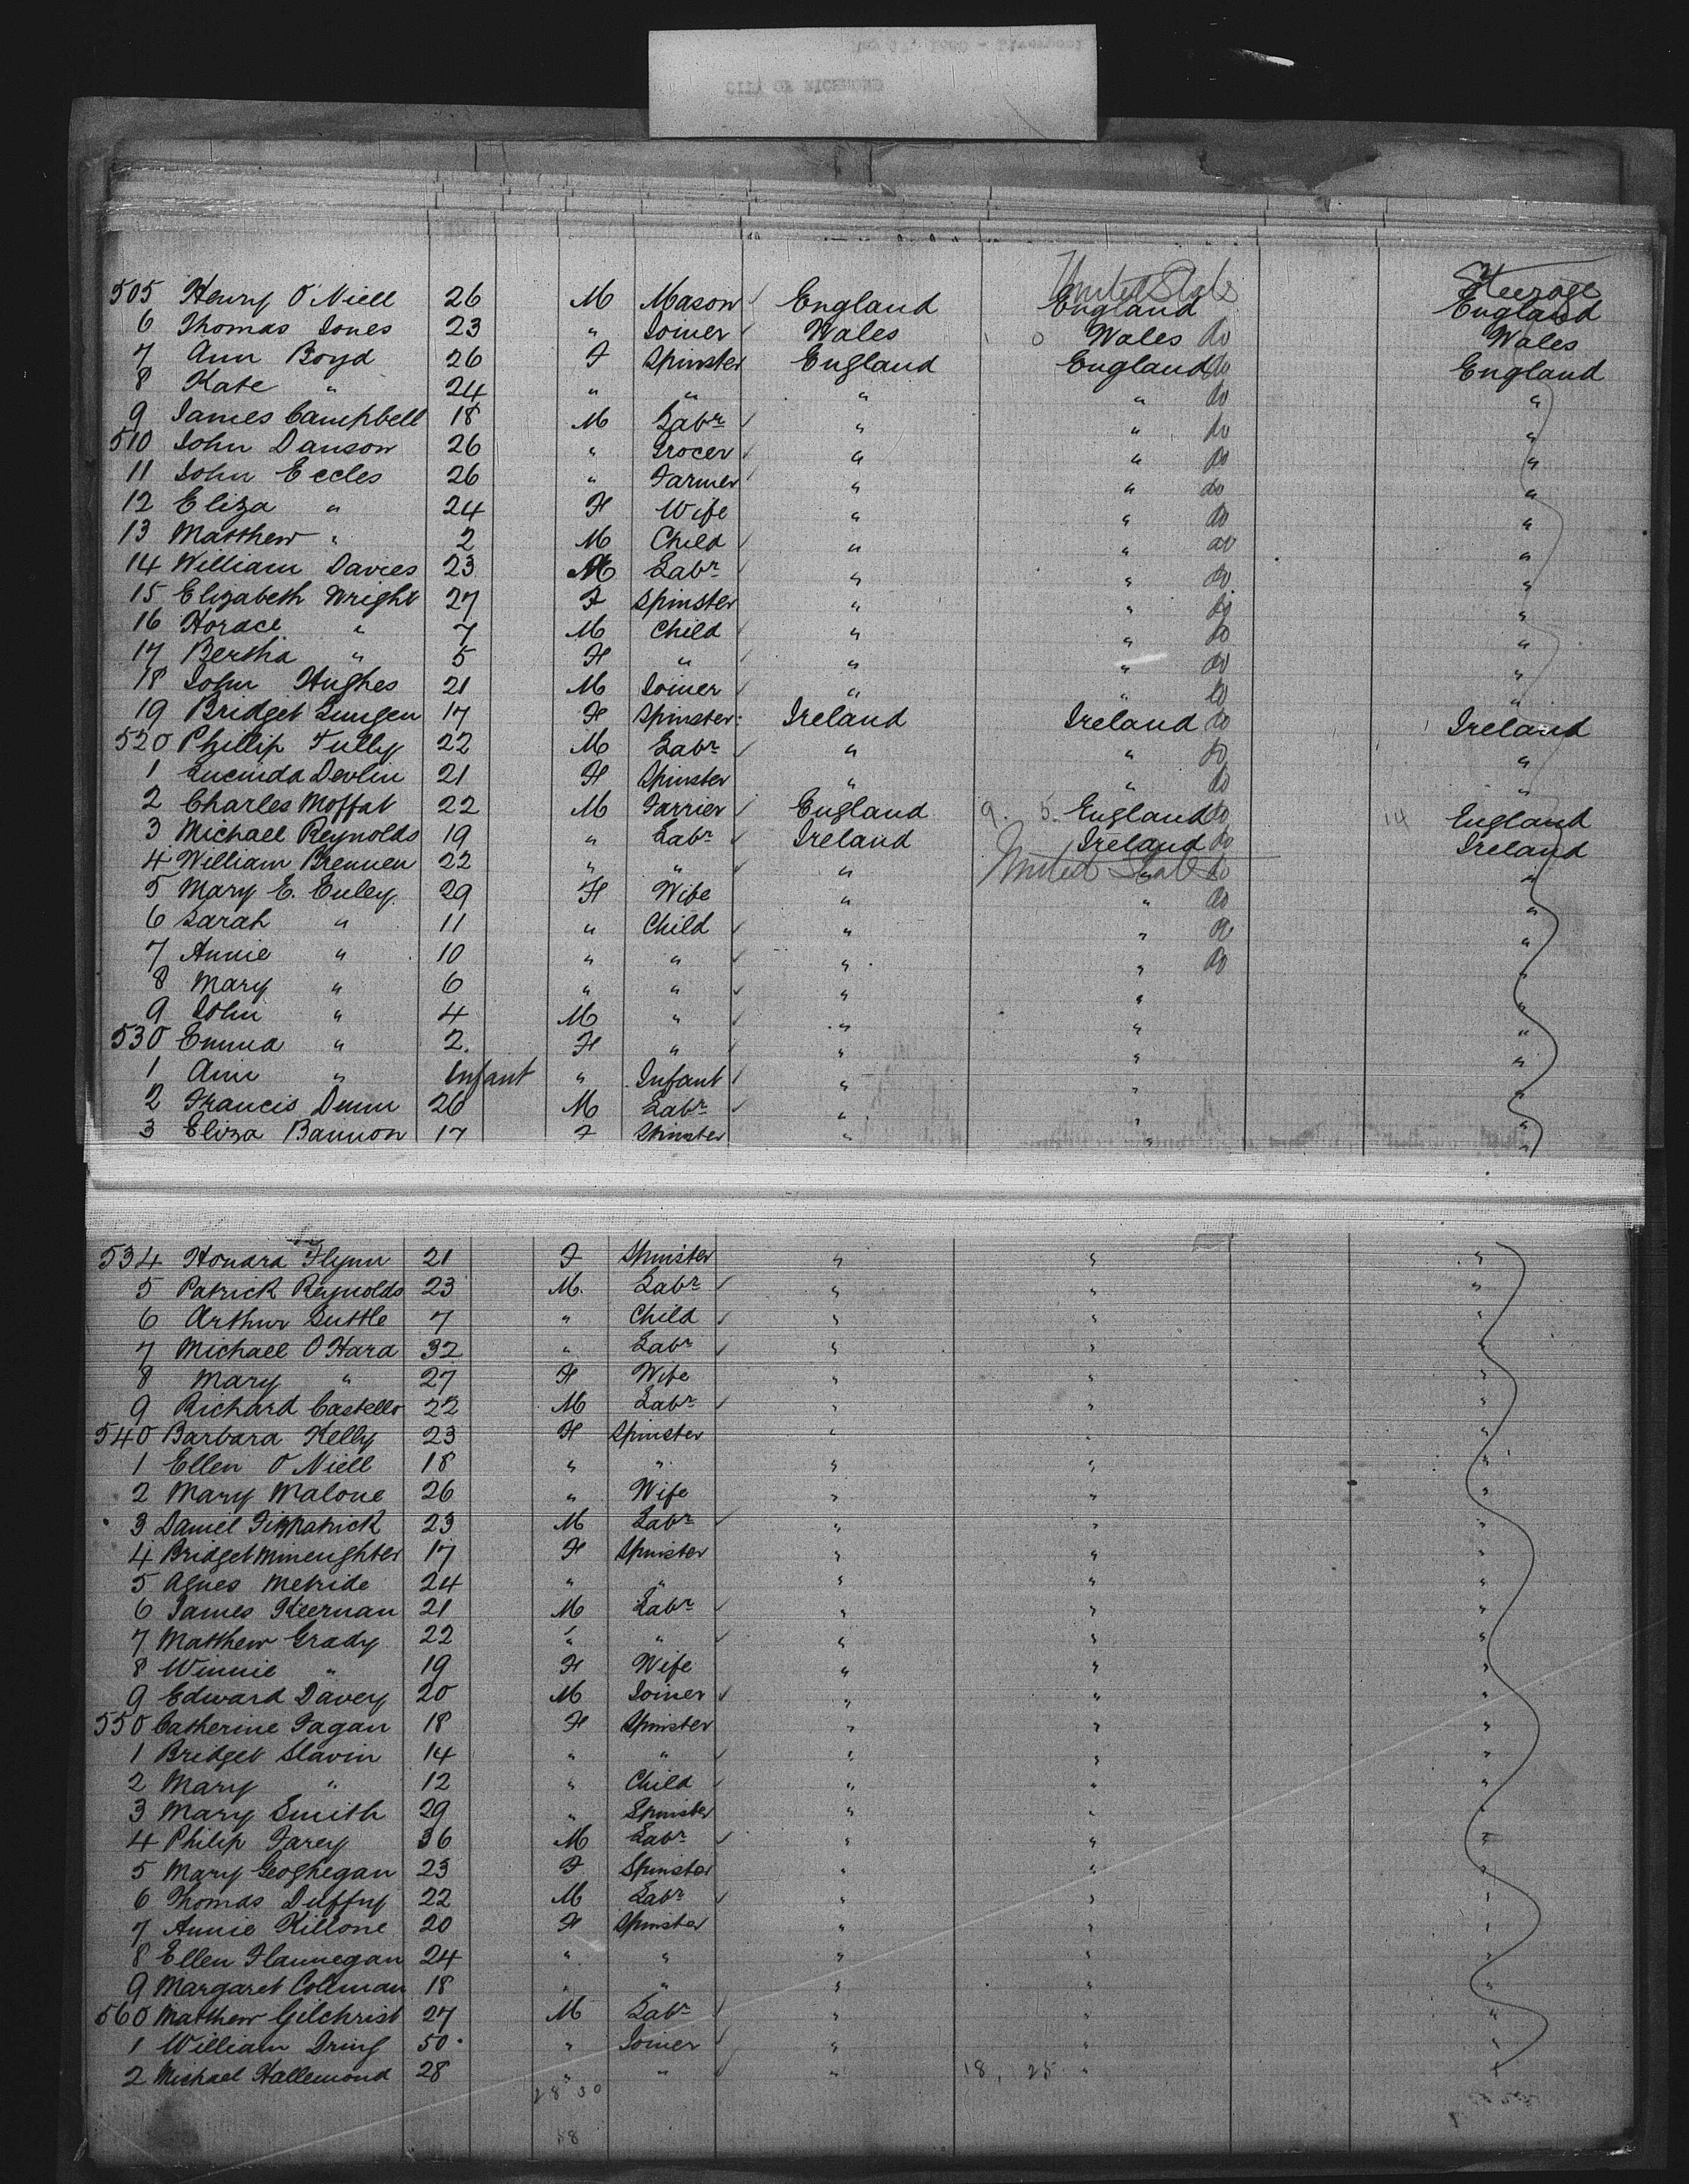 CITY OF RICHMOND
United States Steerage
505 Henry O'Niell 26 M Mason England England England
6 Thomas Jones 23 " Joiner Wales Wales do Wales
7 Ann Boyd 26 F Spinster England England do England
8 Kate " 24 " " " " do "
9 James Campbell 18 M Labr " " do "
510 John Danson 26 " Grocer " " do "
11 John Eccles 26 " Farmer " " do "
12 Eliza " 24 F Wife " " do "
13 Matthew " 2 M Child " " do "
14 William Davies 23 M Labr " " do "
15 Elizabeth Wright 27 F Spinster " " do "
16 Horace " 7 M Child " " do "
17 Bertha " 5 F " " " do "
18 John Hughes 21 M Joiner " " do "
19 Bridget 17 F Spinster Ireland Ireland do Ireland
520 Phillip Tully 22 M Labr " " do "
1 Lucinda Devlin 21 F Spinster " " do "
2 Charles Moffat 22 M Farrier England 9. 5. England do 14 England
3 Michael Reynolds 19 " Labr Ireland Ireland do Ireland
4 William Brennen 22 " " " United States " do "
5 Mary E. Euley 29 F Wife " " do "
6 Sarah " 11 " Child " " do "
7 Annie " 10 " " " " do "
8 Mary " 6 " " " " "
9 John " 4 M " " " "
530 Emma " 2 F " " " "
1 Ann " Infant " Infant " " "
2 Francis Dunn 26 M Labr " " "
3 Eliza Bannon 17 F Spinster " " "
534 Honara Flynn 21 F Spinster " " "
5 Patrick Reynolds 23 M. Labr " " "
6 Arthur Suttle 7 " Child " " "
7 Michael O'Hara 32 " Labr " " "
8 Mary " 27 F Wife " " "
9 Richard Castello 22 M Labr " " "
540 Barbara Kelly 23 F Spinster " " "
1 Ellen O'Niell 18 " " " " "
2 Mary Malone 26 " Wife " " "
3 Daniel Fitzpatrick 23 M Labr " " "
4 Bridget 17 F Spinster " " "
5 Agnes 24 " " " " "
6 James Keernan 21 M Labr " " "
7 Matthew Grady 22 " " " " "
8 Winnie " 19 F Wife " " "
9 Edward Davey 20 M Joiner " " "
550 Catherine Fagan 18 F Spinster " " "
1 Bridget Slavin 14 " " " " "
2 Mary " 12 " Child " " "
3 Mary Smith 29 " Spinster " " "
4 Philip Farey 36 M Labr " " "
5 Mary Geoghegan 23 F Spinster " " "
6 Thomas Duffy 22 M Labr " " "
7 Annie Killone 20 F Spinster " " "
8 Ellen Flannegan 24 " " " " "
9 Margaret Coleman 18 " " " " "
560 Matthew Gilchrist 27 M Labr " " "
1 William Dring 50 " Joiner " " "
2 Michael Hallemond 28 " " " 18, 25 " "
28 30
58